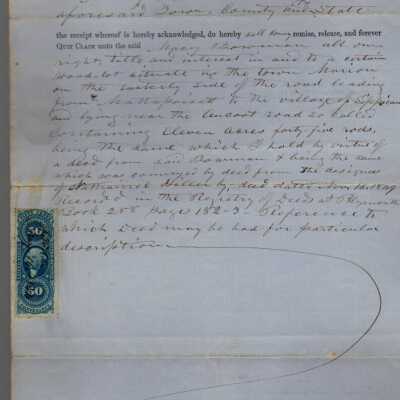 aforesaid Town, County and State
the receipt whereof is hereby acknowledged, do hereby sell convey remise, release, and forever
QUIT CLAIM unto the said Bowman all our
right, title and interest in and to a certain
wood lot situate in the town Marion
on the easterly side of the road leading
from Mattapoisett to the village of Sippican
and lying near the road so called
Containing Eleven Acres forty five rods,
being the same which I hold by virtue of
a deed from said Bowman & being the same
which was conveyed by deed from the assignees
of Nathaniel by deed dated Nov
Recorded in the Registry of Deeds at Plymouth
Book 238 Pages 182-3- Reference to
which Deed may be had for particular
description
50
50